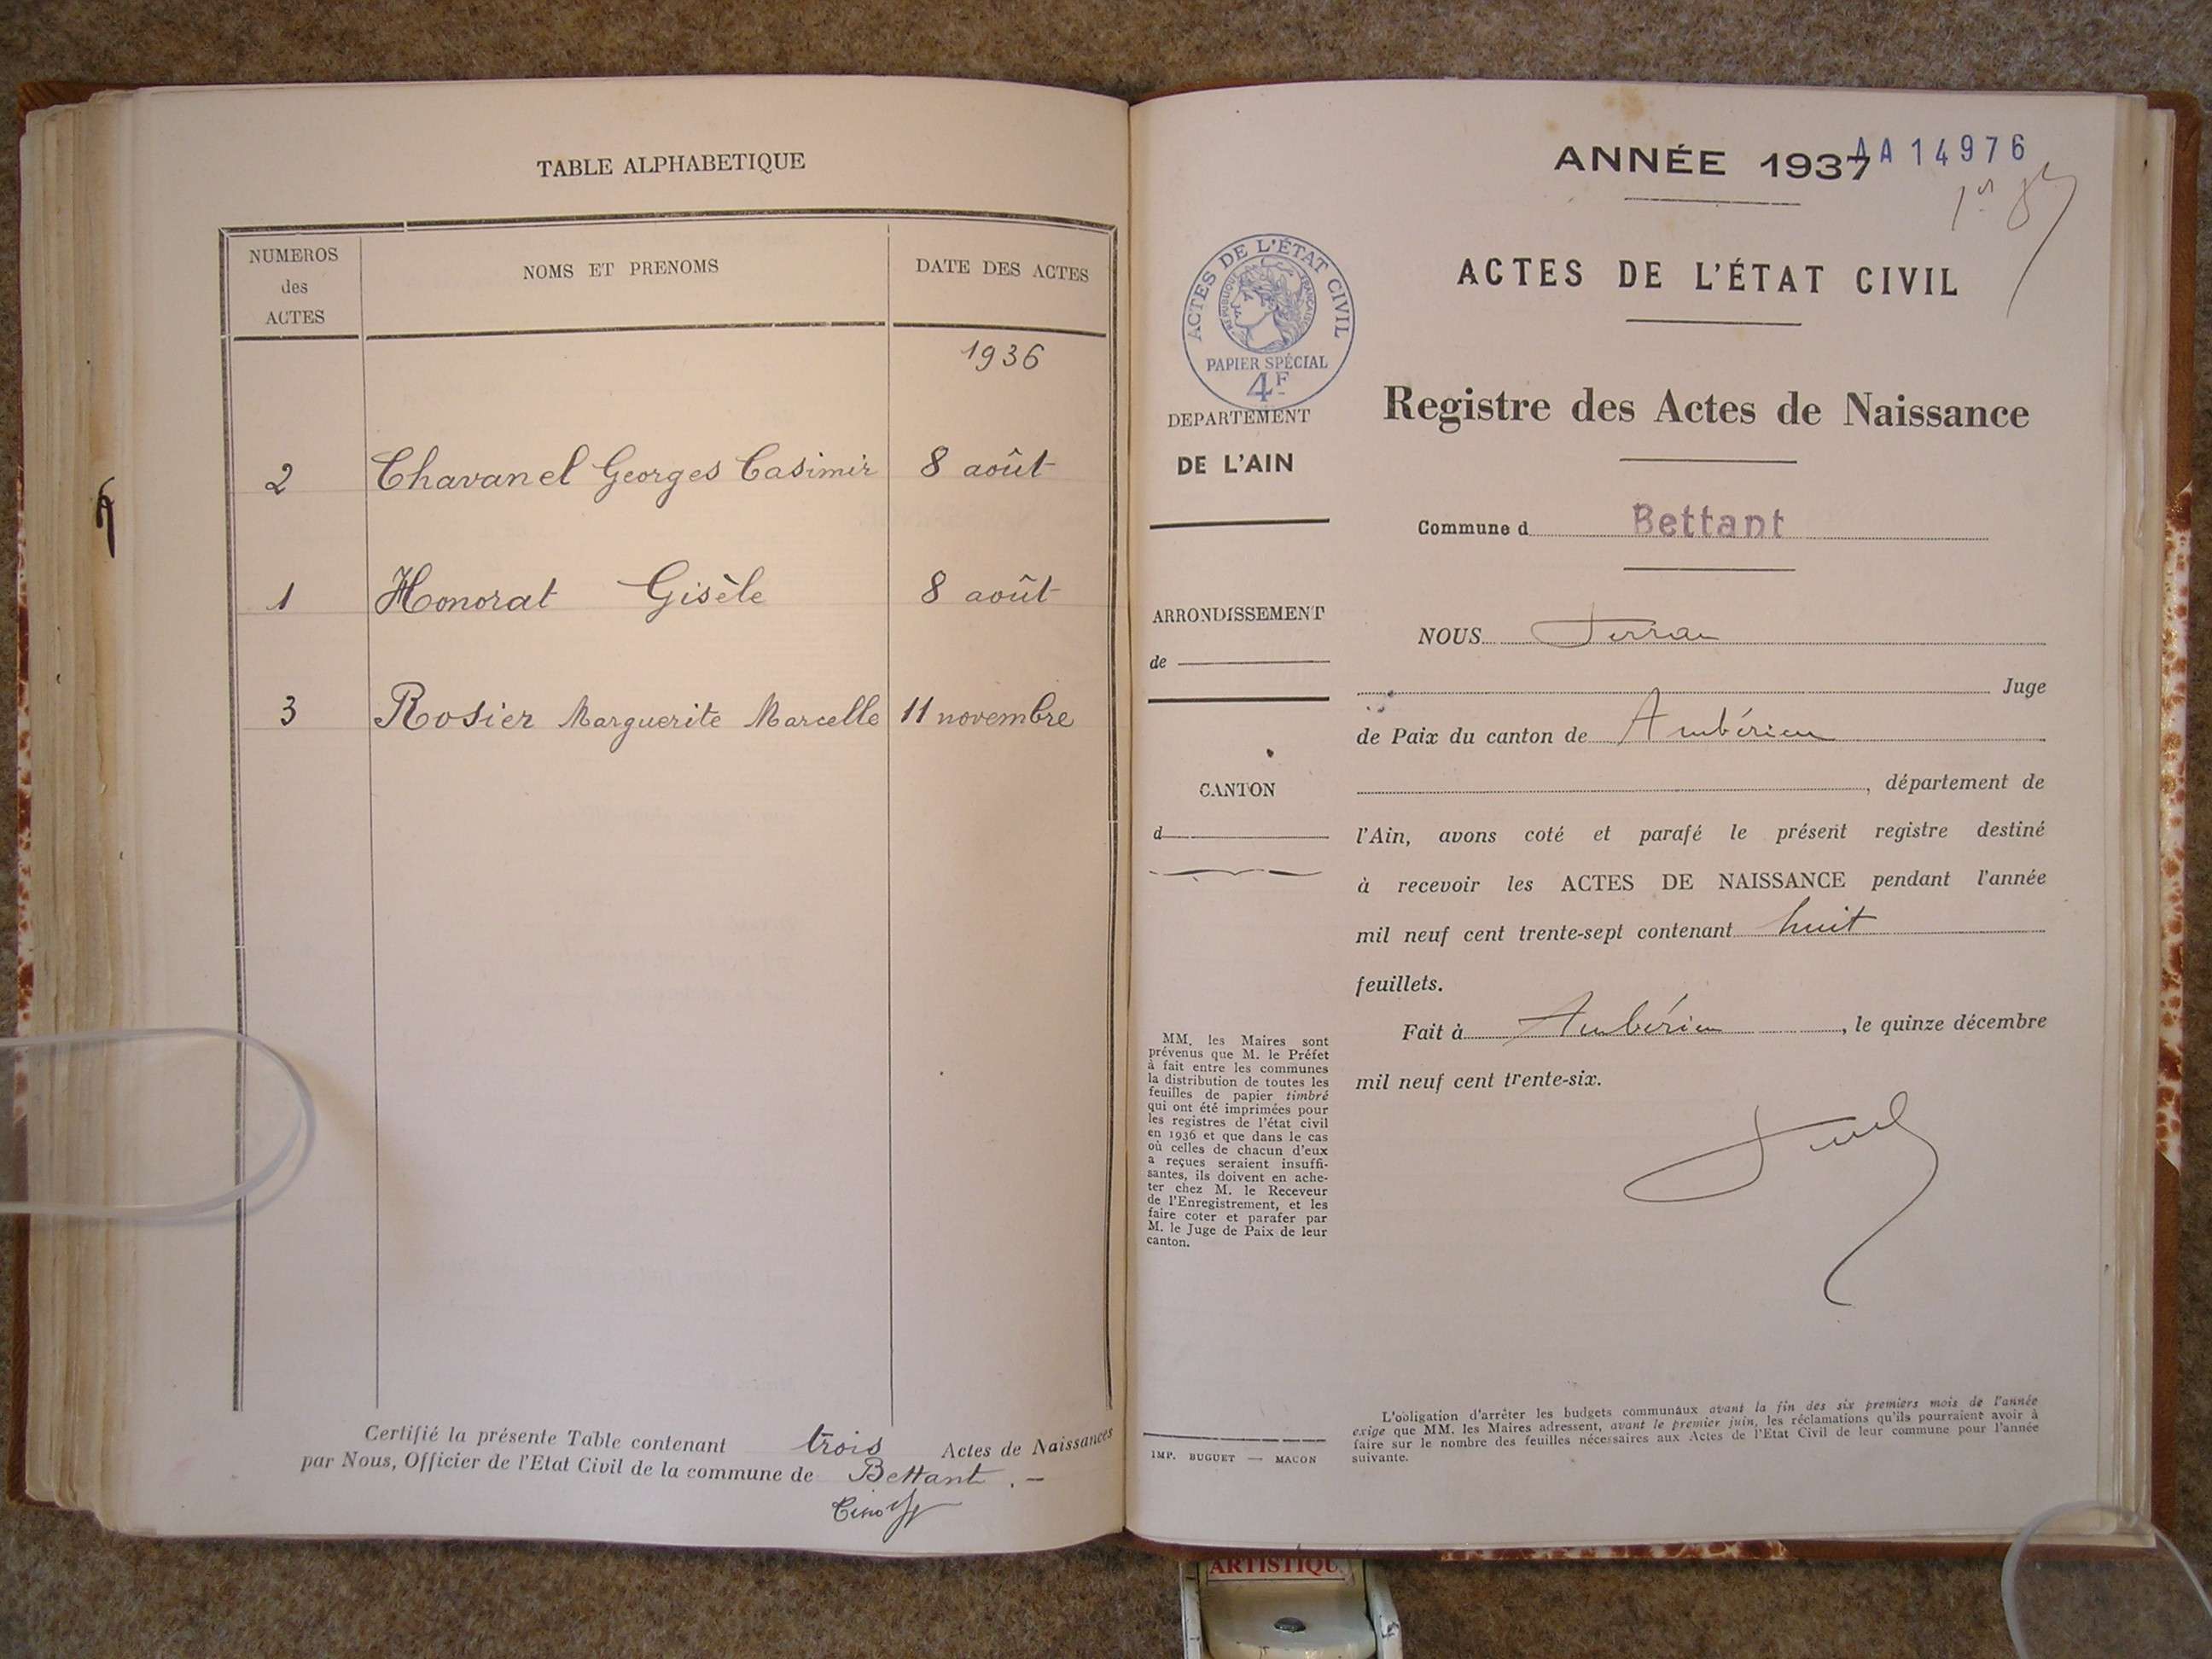 TABLE ALPHABETIQUE
NUMEROS
des
ACTES
NOMS ET PRENOMS
DATE DES ACTES
1936
2 Chavanel Georges Casimir 8 août
1 Honorat Gisèle 8 août
3 Rosier Marguerite Marcelle 11 novembre
Certifié la présente Table contenant trois Actes de Naissances
par Nous, Officier de l'Etat Civil de la commune de Bettant . –
ANNÉE 1937
AA 14976
ACTES DE L'ÉTAT CIVIL
ACTES DE L'ÉTAT CIVIL
RÉPUBLIQUE FRANÇAISE
PAPIER SPÉCIAL
4F
DEPARTEMENT
DE L'AIN
ARRONDISSEMENT
de
CANTON
d
MM. les Maires sont
prévenus que M. le Préfet
à fait entre les communes
la distribution de toutes les
feuilles de papier timbré
qui ont été imprimées pour
les registres de l'état civil
en 1936 et que dans le cas
où celles de chacun d'eux
a reçues seraient insuffi-
santes, ils doivent en ache-
ter chez M. le Receveur
de l'Enregistrement, et les
faire coter et parafer par
M. le Juge de Paix de leur
canton.
IMP. BUGUET — MACON
Registre des Actes de Naissance
Commune d Bettant
NOUS
Juge
de Paix du canton de Ambérieu
, département de
l'Ain, avons coté et parafé le présent registre destiné
à recevoir les ACTES DE NAISSANCE pendant l'année
mil neuf cent trente-sept contenant huit
feuillets.
Fait à Ambérieu, le quinze décembre
mil neuf cent trente-six.
L'obligation d'arrêter les budgets communaux avant la fin des six premiers mois de l'année
exige que MM. les Maires adressent, avant le premier juin, les réclamations qu'ils pourraient avoir à
faire sur le nombre des feuilles nécessaires aux Actes de l'Etat Civil de leur commune pour l'année
suivante.
ARTISTIQU